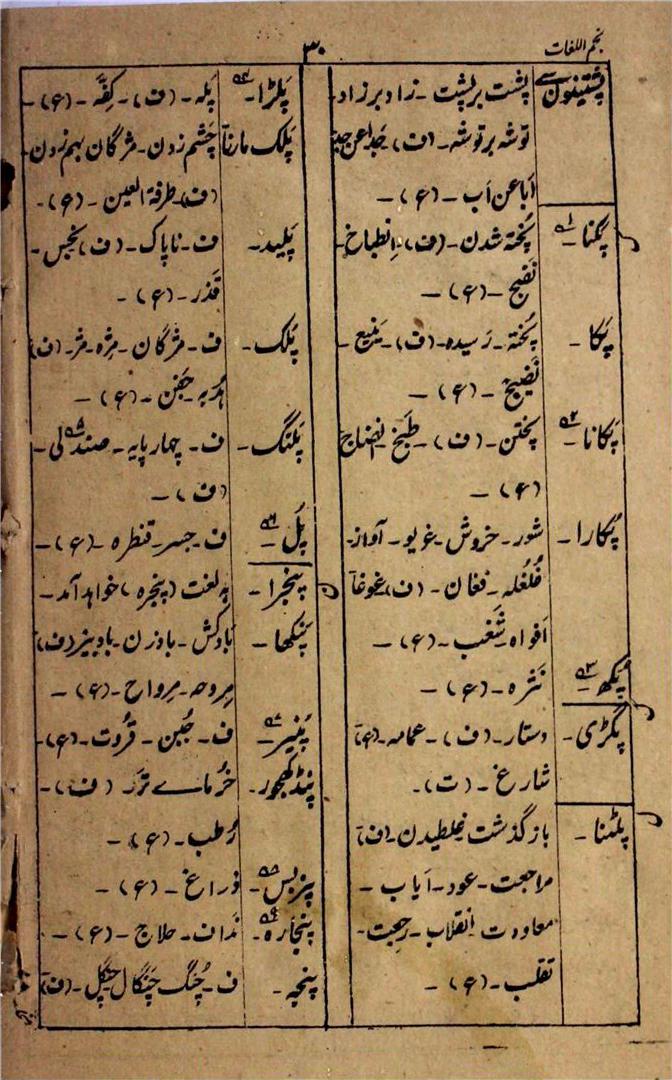 نجم اللغات
۳۰
پشتینون سے پشت بر پشت - زاد بر زاد -
توشه بر توشه - (ف)
اباعن اب - (ع) -
پکنا - پخته شدن - (ف) انطباخ -
نضج - (ع) -
پکا - پخته - رسیده - (ف) - ینیع -
نضیج - (ع) -
پکانا - پختن - (ف) - طبخ
(ع) -
پکارا - شور - خروش - غریو - آواز -
غلغله - فغان - (ف) غوغا
افواه - شغب - (ع) -
پکھ - نثره - (ع) -
پگڑی - دستار - (ف) - عمامه - (ع)
شارغ - (ت) -
پلٹنا - باز گذشت - غلطیدن - (ف)
مراجعت - عود - ایاب -
معاودت - انقلاب - رجعت -
تقلب - (ع) -
پلڑا - پله - (ف) - کفّه - (ع) -
پلک مارنا چشم زدن - مژگان بهم زدن -
(ف) طرفة العین - (ع) -
پلید - ف - ناپاک - (ف) نجس -
قذر - (ع) -
پلک - ف - مژگان - مژه - مژ - (ف)
هدبه - جفن - (ع) -
پلنگ - ف - چهار پایه - صندلی -
(ف) -
پل - ف - جسر - قنطره - (ع) -
پنجرا - به لغت (پنجره) خواهد آمد -
پنکھا - بادکش - بادزن - بادبیز (ف)
مروحه - مرواح - (ع) -
پنیر - ف - جبن - قروت - (ع) -
پنڈ کھجور - خرمائے تر - (ف) -
رطب - (ع) -
ذراع - (ع) -
پنجاره - نداف - حلاج - (ع) -
پنجه - ف - چنگ - چنگال - چنگل - (ف)